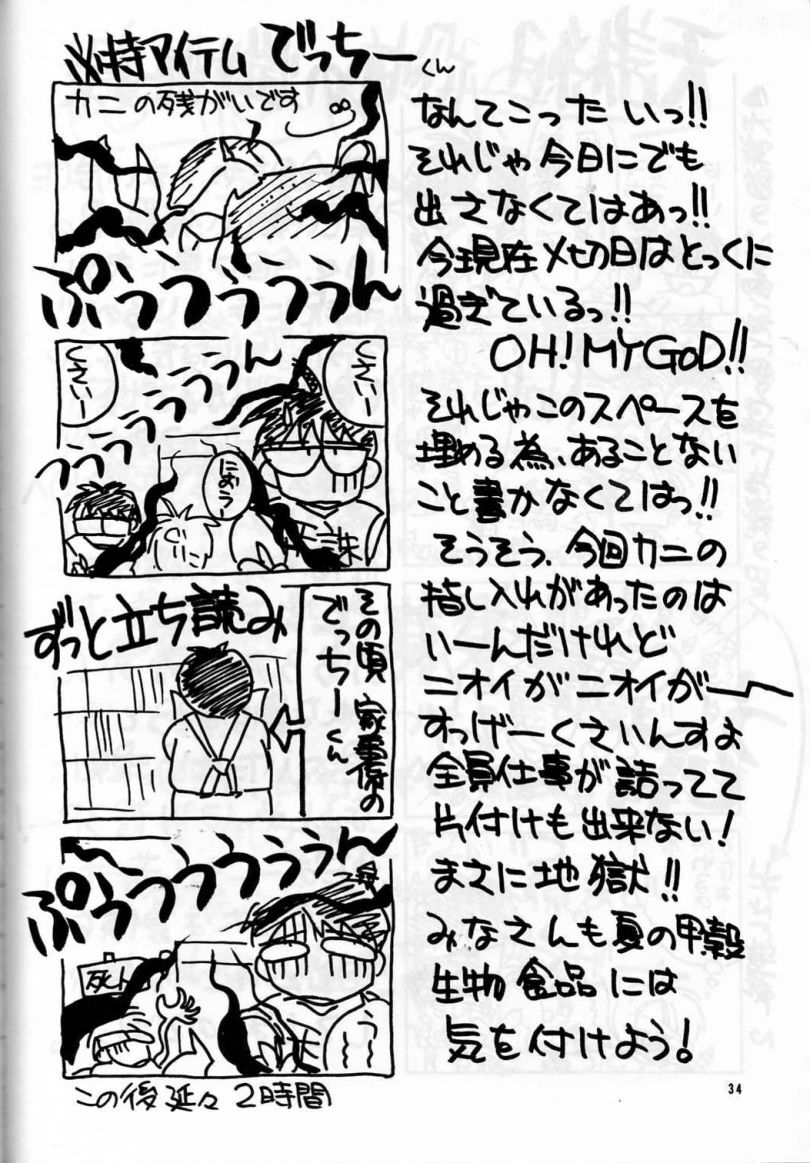 必持アイテムでっちーくん
カニの残がいです
ぷぅつぅぅぅん
くさいー
くさいー
うつうううううん
におうー
誅
その頃 家事係の
でっちーくん
ずっと立ち読み
ぷぅつつぅぅぅん
死人
この後延々2時間
なんてこったいっ!!
それじゃ今日にでも
出さなくてはあっ!!
今現在〆切日はとっくに
過ぎているっ!!
OH!MYGOD!!
それじゃこのスペースを
埋める為、あることない
こと書かなくてはっ!!
そうそう、今回カニの
指し入れがあったのは
いーんだけれど
ニオイがニオイがー
すっげーくさいんすよ
全員仕事が詰ってて
片付けも出来ない!
まさに地獄!!
みなさんも夏の甲殻
生物食品には
気を付けよう!
34